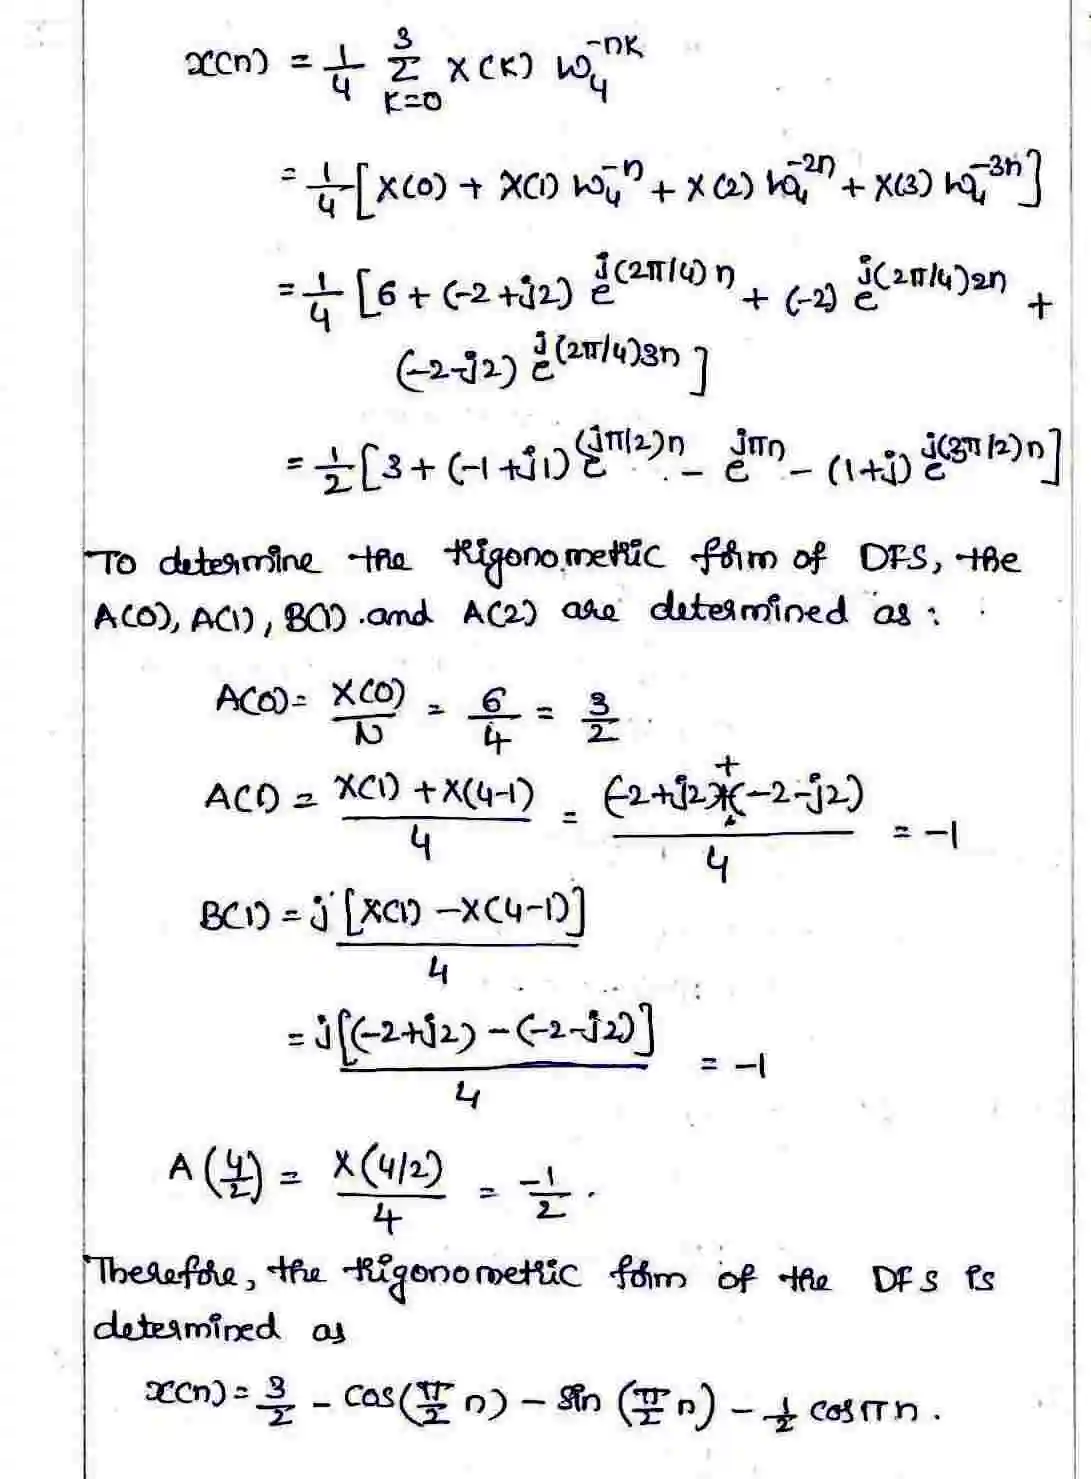 x(n) = 1/4 Σ_{K=0}^{3} X(K) W_4^{-nK}
= 1/4 [X(0) + X(1) W_4^{-n} + X(2) W_4^{-2n} + X(3) W_4^{-3n}]
= 1/4 [6 + (-2+j2) e^{j(2π/4)n} + (-2) e^{j(2π/4)2n} +
(-2-j2) e^{j(2π/4)3n}]
= 1/2 [3 + (-1+j1) e^{(jπ/2)n} - e^{jπn} - (1+j) e^{j(3π/2)n}]
To determine the trigonometric form of DFS, the
A(0), A(1), B(1) and A(2) are determined as :
A(0) = X(0)/N = 6/4 = 3/2
A(1) = X(1) + X(4-1)/4 = (-2+j2)+(-2-j2)/4 = -1
B(1) = j[X(1) - X(4-1)]/4
= j[(-2+j2) - (-2-j2)]/4 = -1
A(4/2) = X(4/2)/4 = -1/2.
Therefore, the trigonometric form of the DFS is
determined as
x(n) = 3/2 - cos(π/2 n) - sin(π/2 n) - 1/2 cosπn.